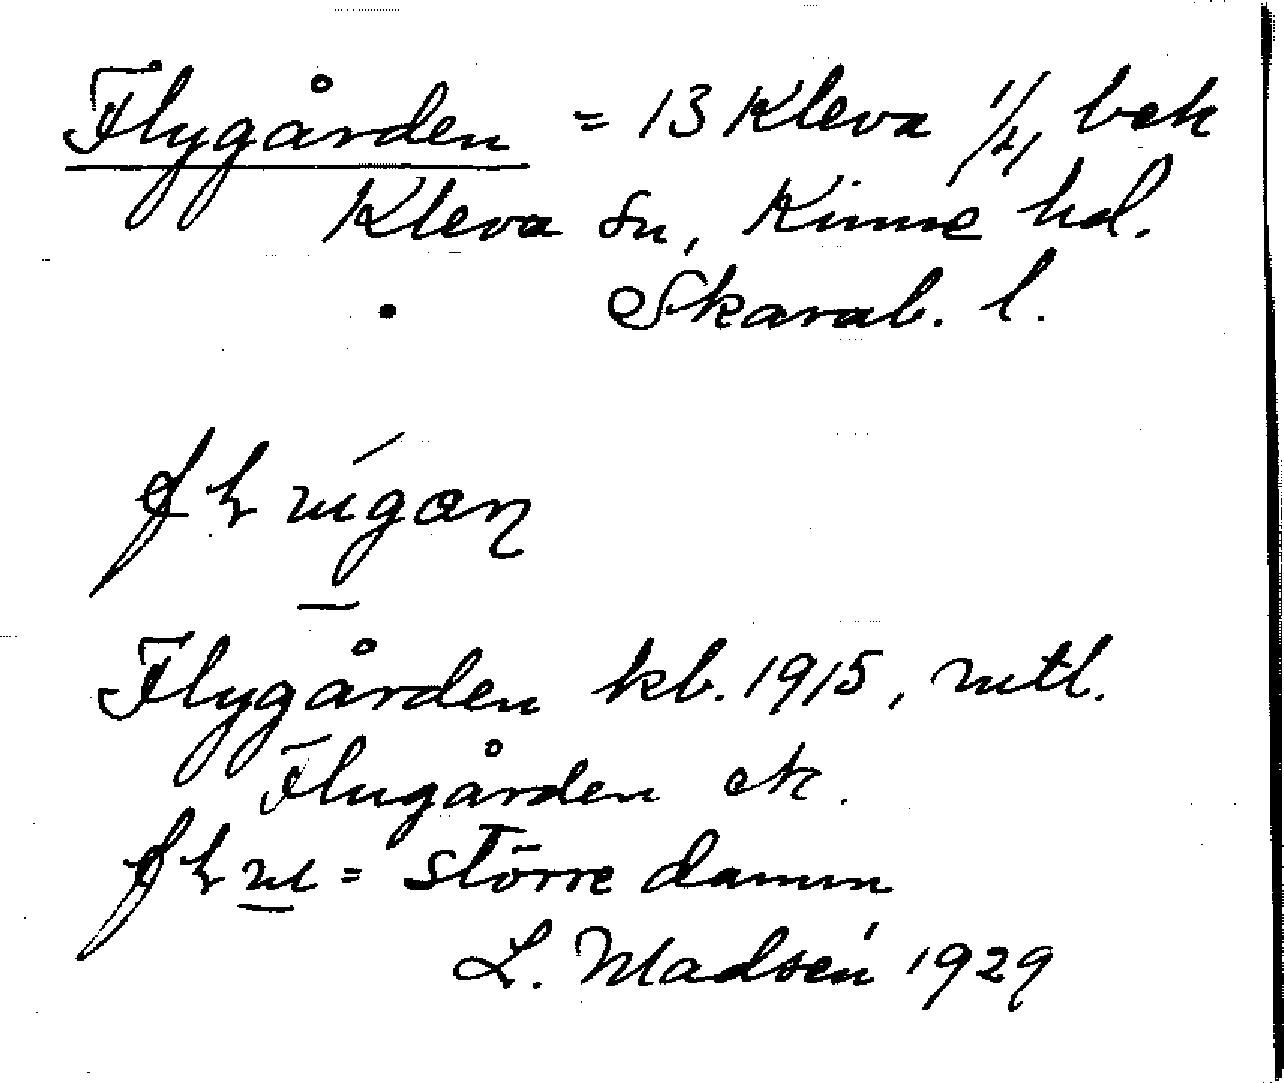 Flygården = 13 Kleva 1/4, bek
Kleva sn, Kinne hd.
Skarab. l.
Flygården kb. 1915,
Flugården etc.
= större damm
L. Madsén 1929